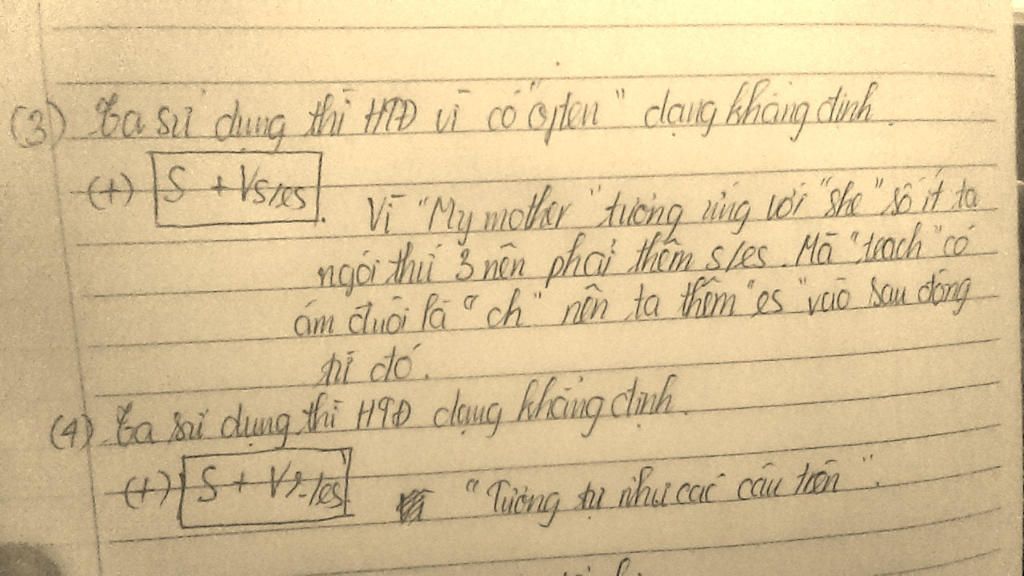 (3) Ta sử dụng thì HTĐ vì có "often" dạng khẳng định.
(+) S + Vs/es.
Vì "My mother" tương ứng với "she" số ít ta
ngôi thứ 3 nên phải thêm s/es. Mà "teach" có
âm đuôi là "ch" nên ta thêm "es" vào sau động
từ đó.
(4) Ta sử dụng thì HTĐ dạng khẳng định.
(+) S + Vs/es
"Tương tự như các câu trên".